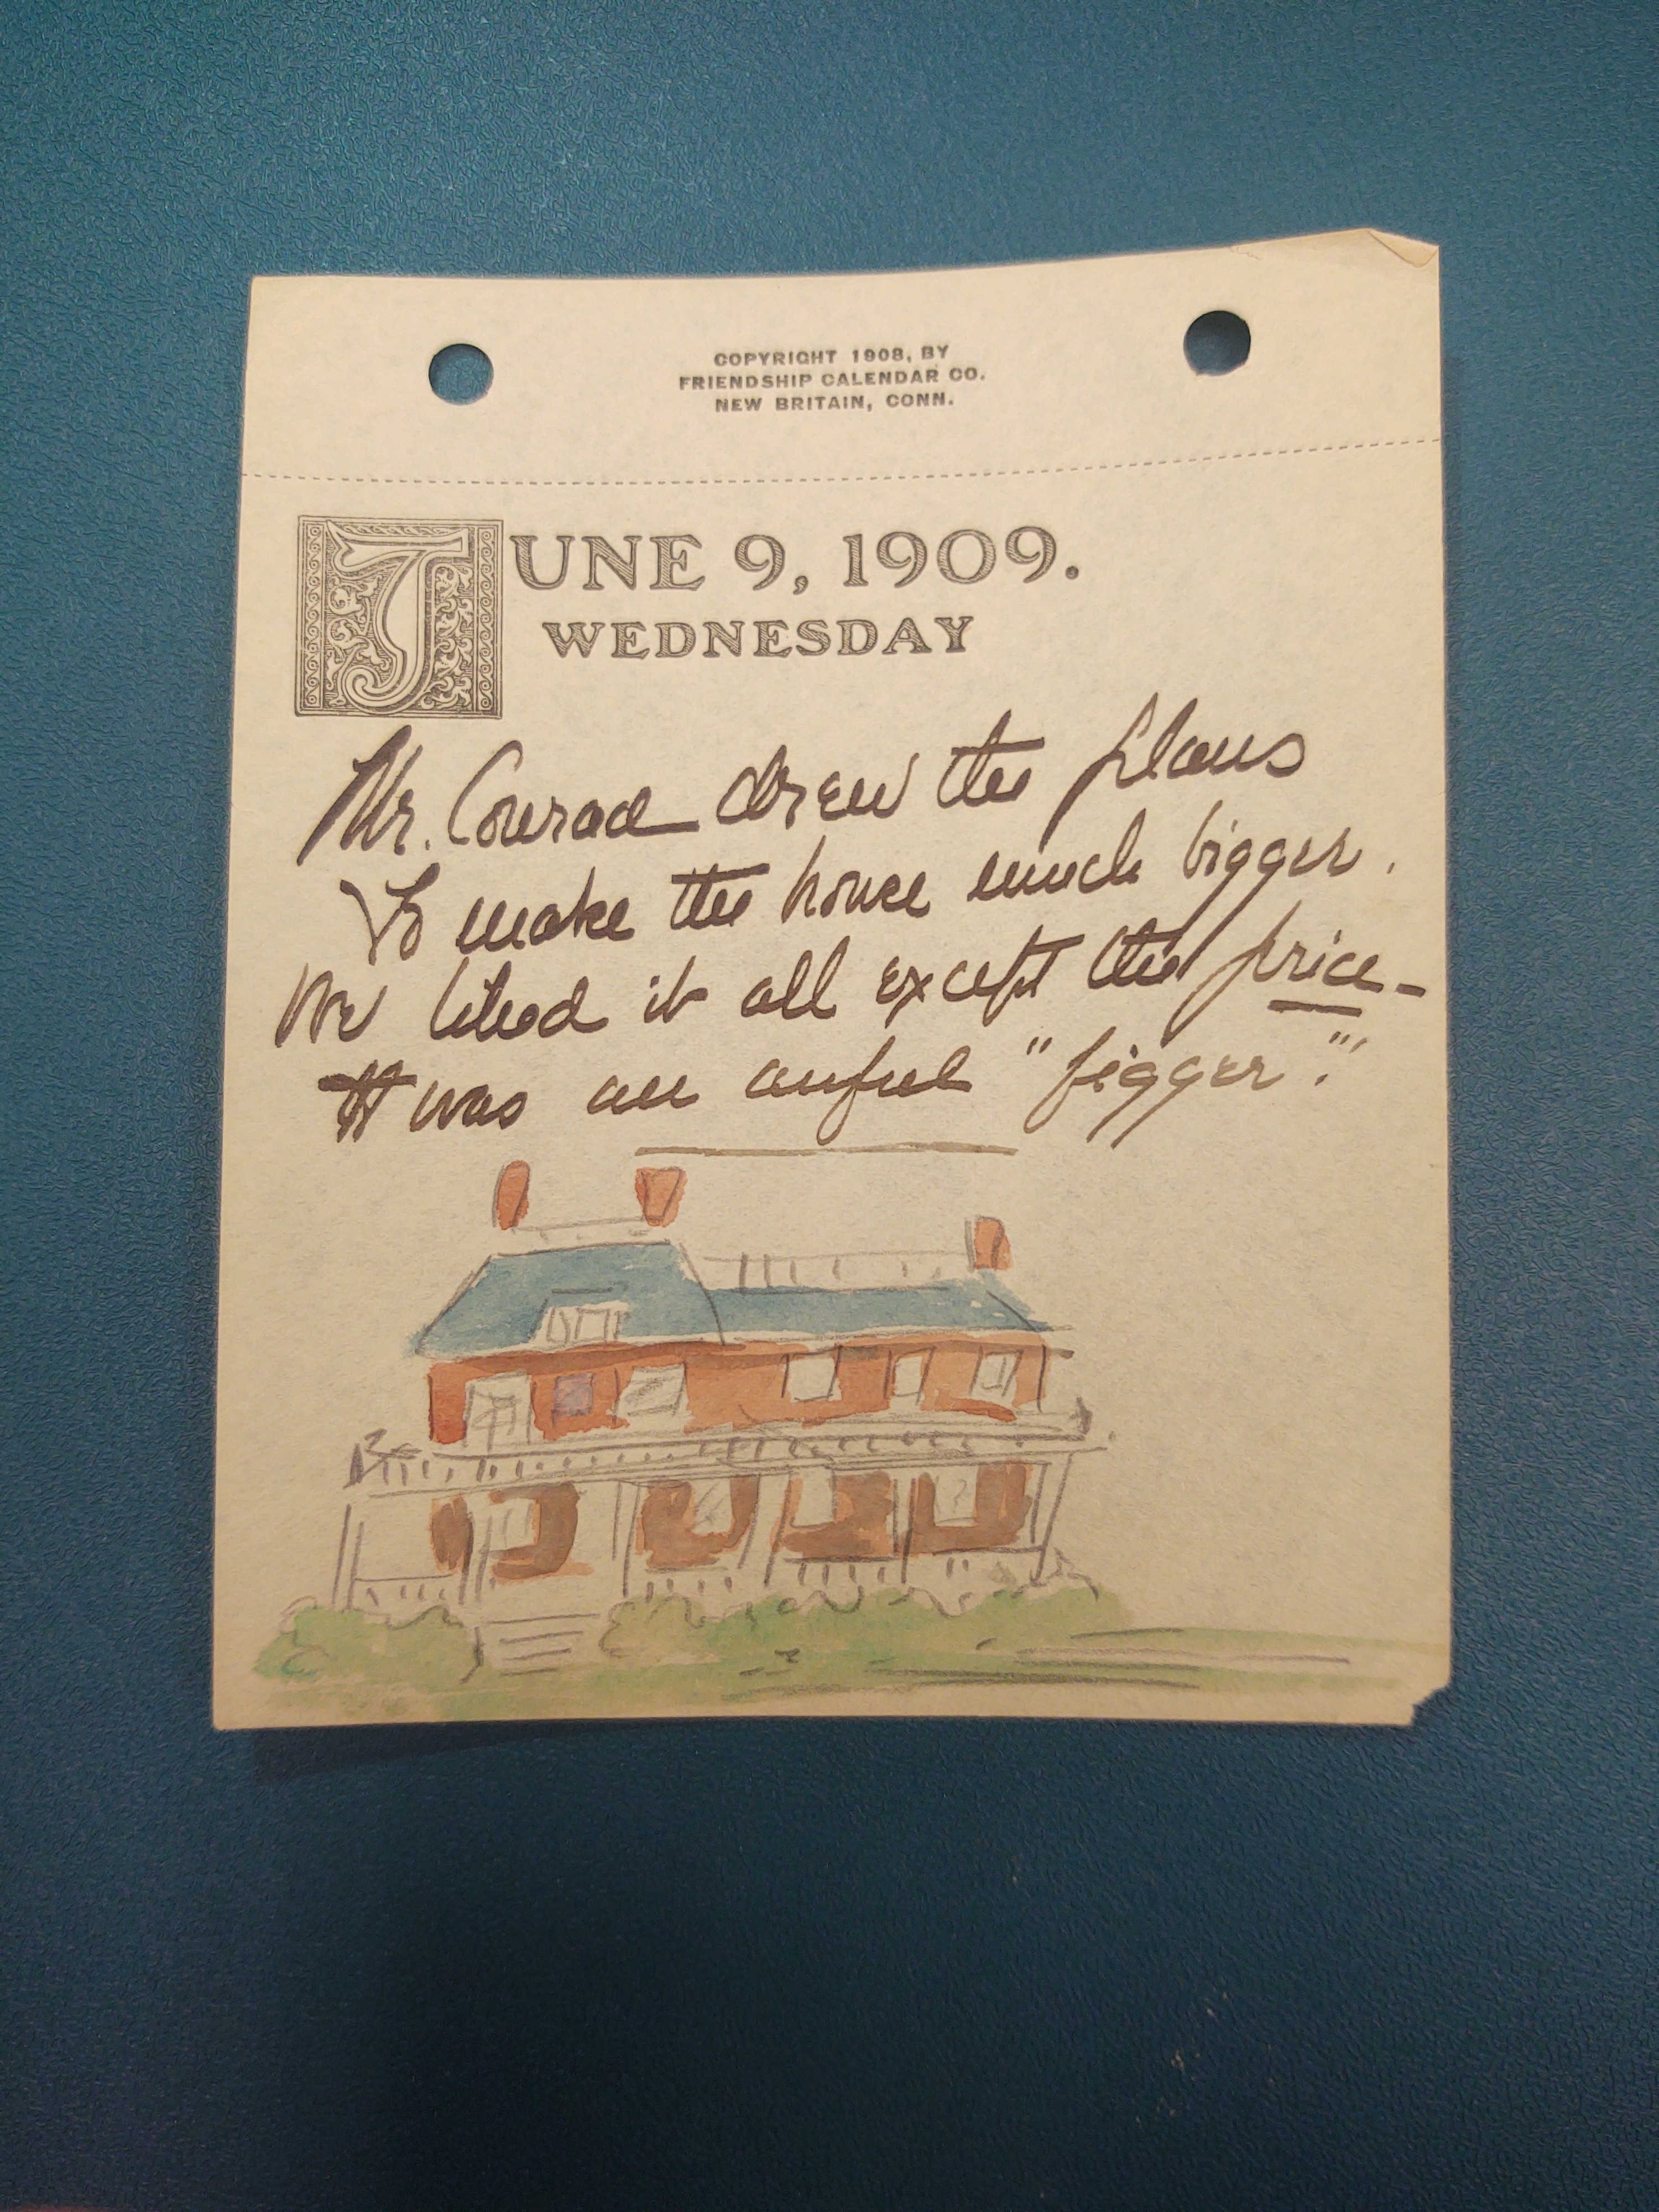 COPYRIGHT 1908, BY
FRIENDSHIP CALENDAR CO.
NEW BRITAIN, CONN.
JUNE 9, 1909.
WEDNESDAY
Mr. Conrad drew the plans
To make the house much bigger.
We liked it all except the price-
It was an awful "figger."